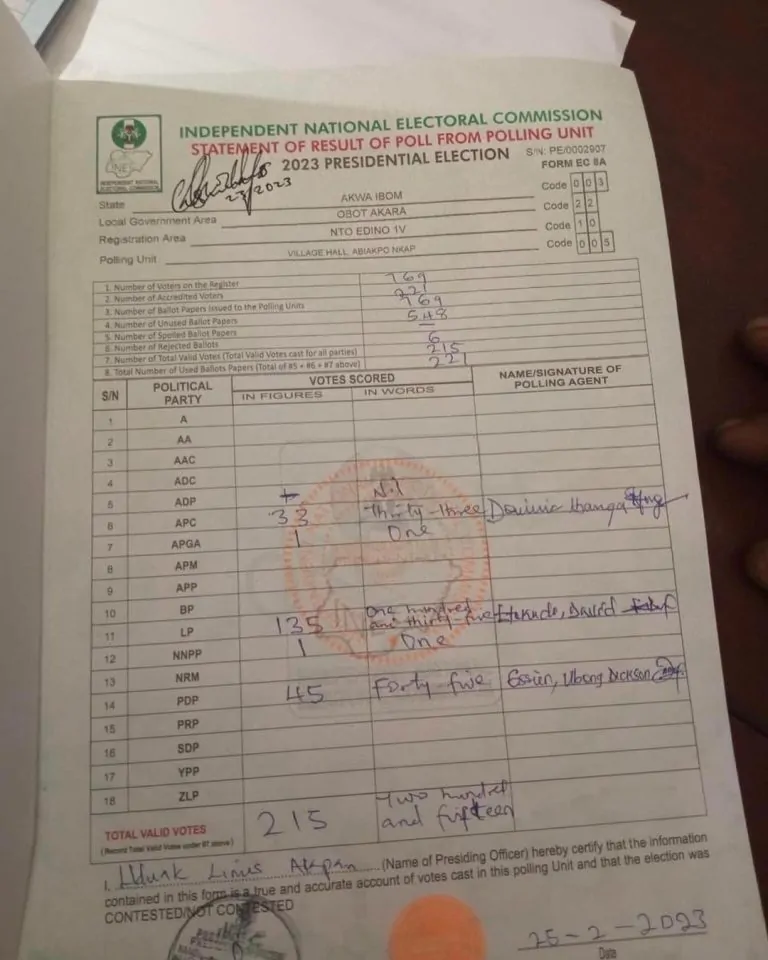 INDEPENDENT NATIONAL ELECTORAL COMMISSION
STATEMENT OF RESULT OF POLL FROM POLLING UNIT
2023 PRESIDENTIAL ELECTION
S/N: PE/0002907
FORM EC 8A
INEC
INDEPENDENT NATIONAL
ELECTORAL COMMISSION
23/2023
State AKWA IBOM Code 003
Local Government Area OBOT AKARA Code 22
Registration Area NTO EDINO 1V Code 10
Polling Unit VILLAGE HALL, ABIAKPO NKAP Code 005
1. Number of Voters on the Register 769
2. Number of Accredited Voters 221
3. Number of Ballot Papers Issued to the Polling Units 769
4. Number of Unused Ballot Papers 548
5. Number of Spoiled Ballot Papers —
6. Number of Rejected Ballots 6
7. Number of Total Valid Votes (Total Valid Votes cast for all parties) 215
8. Total Number of Used Ballots Papers (Total of #5 + #6 + #7 above) 221
S/N POLITICAL PARTY VOTES SCORED NAME/SIGNATURE OF POLLING AGENT
IN FIGURES IN WORDS
1 A
2 AA
3 AAC
4 ADC
5 ADP
6 APC 33 Thirty-three
7 APGA 1 One
8 APM
9 APP
10 BP
11 LP 135 One hundred and thirty-five David
12 NNPP 1 One
13 NRM
14 PDP 45 Forty-five Essien, Ubong Dickson
15 PRP
16 SDP
17 YPP
18 ZLP
TOTAL VALID VOTES 215 Two hundred and fifteen
(Record Total Valid Votes under #7 above)
I, Linus Akpan (Name of Presiding Officer) hereby certify that the information
contained in this form is a true and accurate account of votes cast in this polling Unit and that the election was
CONTESTED/NOT CONTESTED
25-2-2023
Date